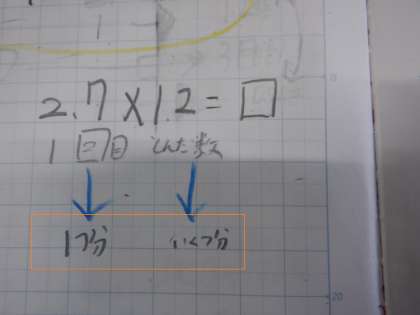 2.7×1.2=□
1 回目 とんだ数
1つ分 いくつ分
20